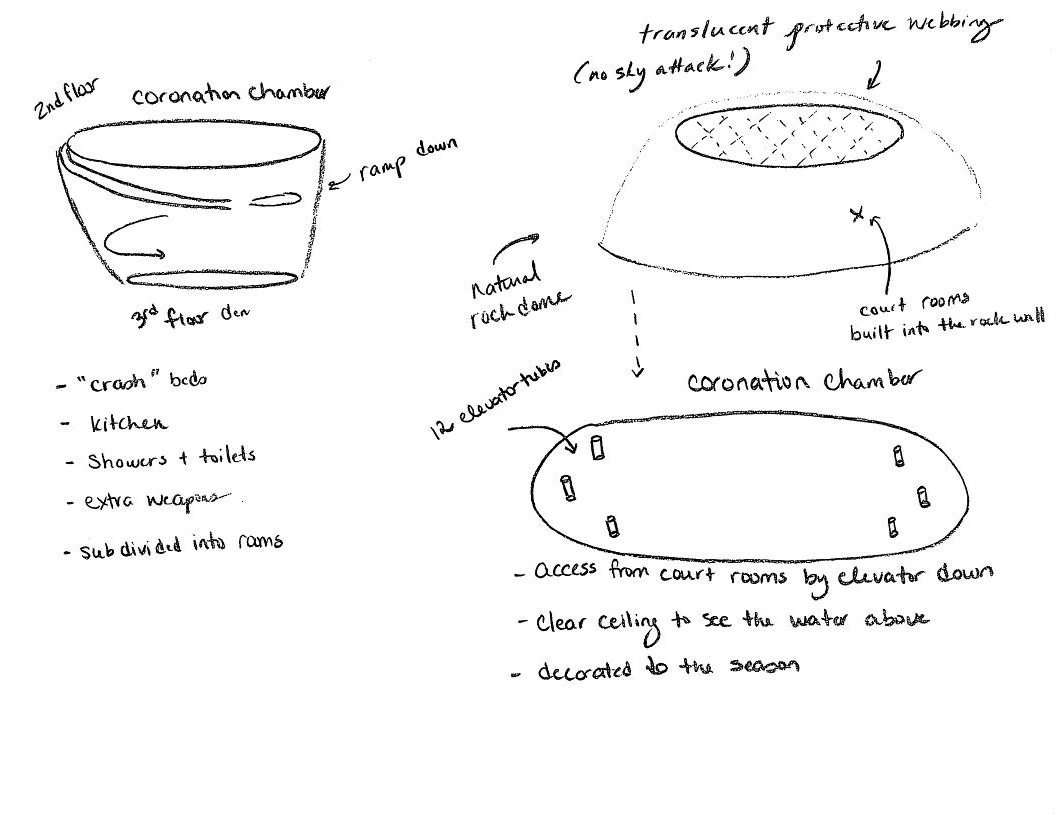 translucent protective webbing
(no sky attack!)
2nd floor
coronation chamber
ramp down
natural
rock dome
court rooms
built into the rock wall
3rd floor den
- "crash" beds
- kitchen
- Showers + toilets
- extra weapons
- subdivided into rooms
12 elevator tubes
coronation chamber
- access from court rooms by elevator down
- Clear ceiling to see the water above
- decorated to the season